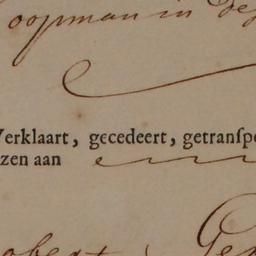 oopman in de
Verklaart, gecedeert, getranſpo
zen aan
obert